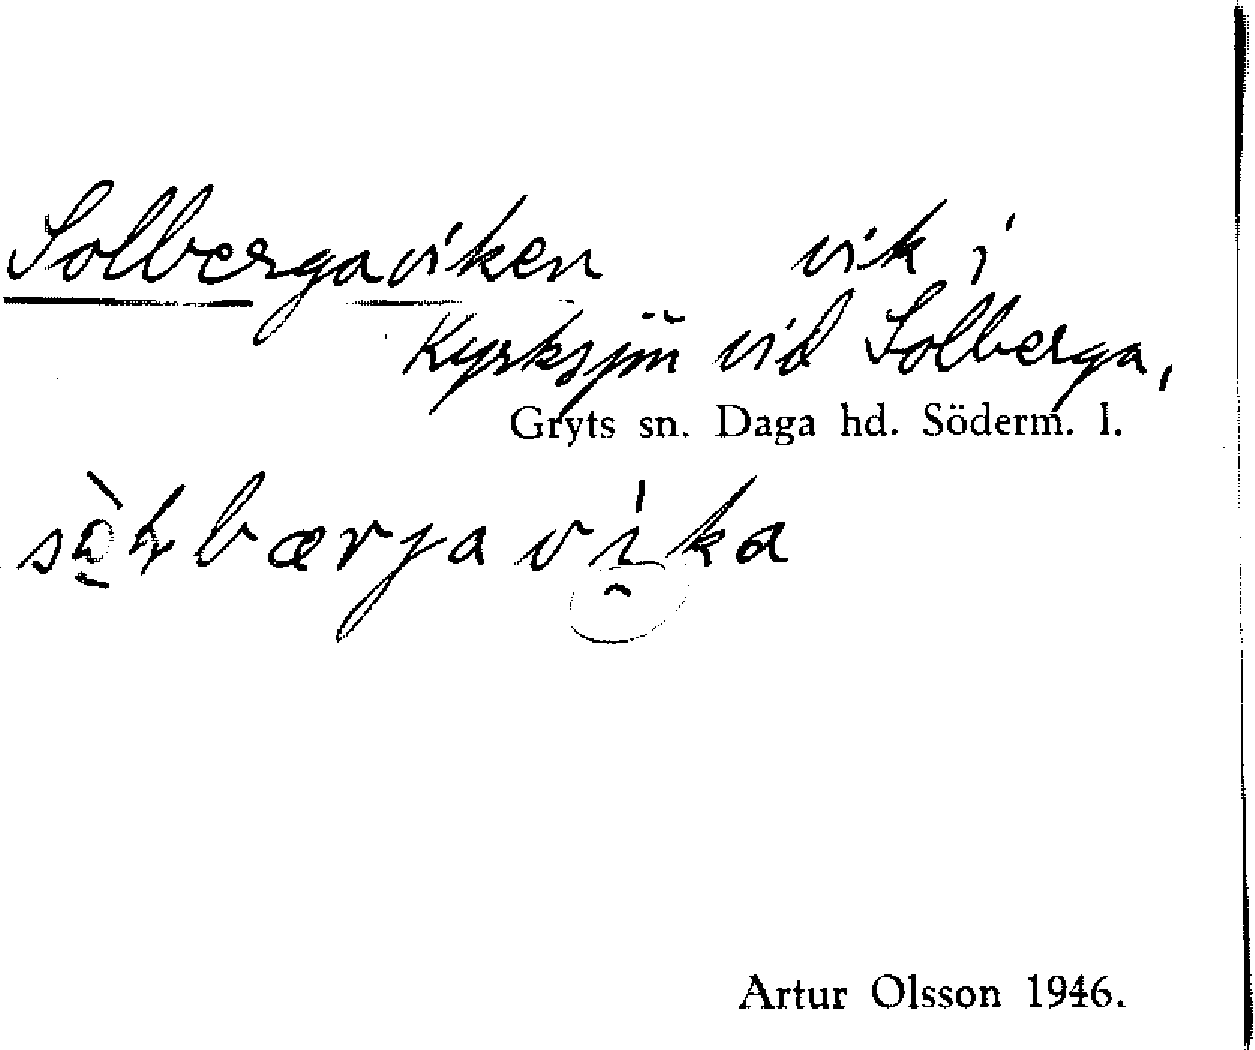 Solbergaviken vik i
Kyrksjön vid Solberga,
Gryts sn. Daga hd. Söderm. l.
Artur Olsson 1946.